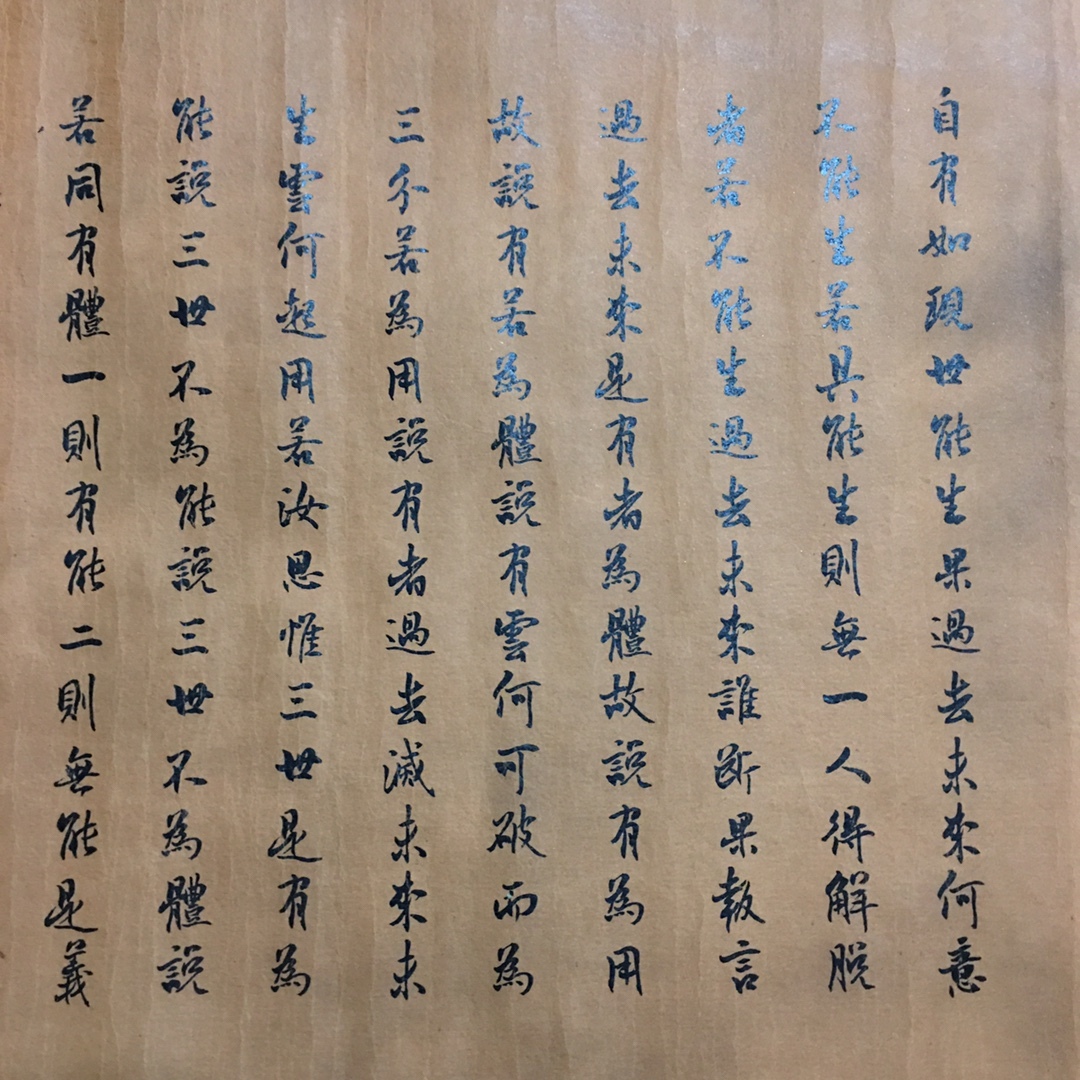 自有如現世能生果過去未來何意
不能生若具能生則無一人得解脫
者若不能生過去未來誰斷果報言
過去未來是有者為體故說有為用
故說有若為體說有雲何可破而為
三分若為用說有者過去滅未來未
生雲何起用若汝思惟三世是有為
能說三世不為能說三世不為體說
若同有體一則有能二則無能是義